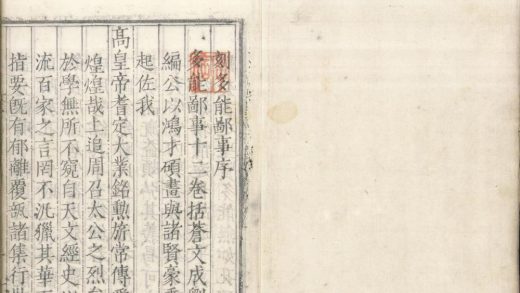 刻多能鄙事序
多能鄙事十二卷括蒼文成
編公以鴻才碩畫與諸賢豪
起佐我
髙皇帝耆定大業銘勲旂常傳
煌煌哉上追周召太公之烈
於學無所不窺自天文經史
流百家之言罔不汎獵其華
指要旣有郁離覆瓿諸集行